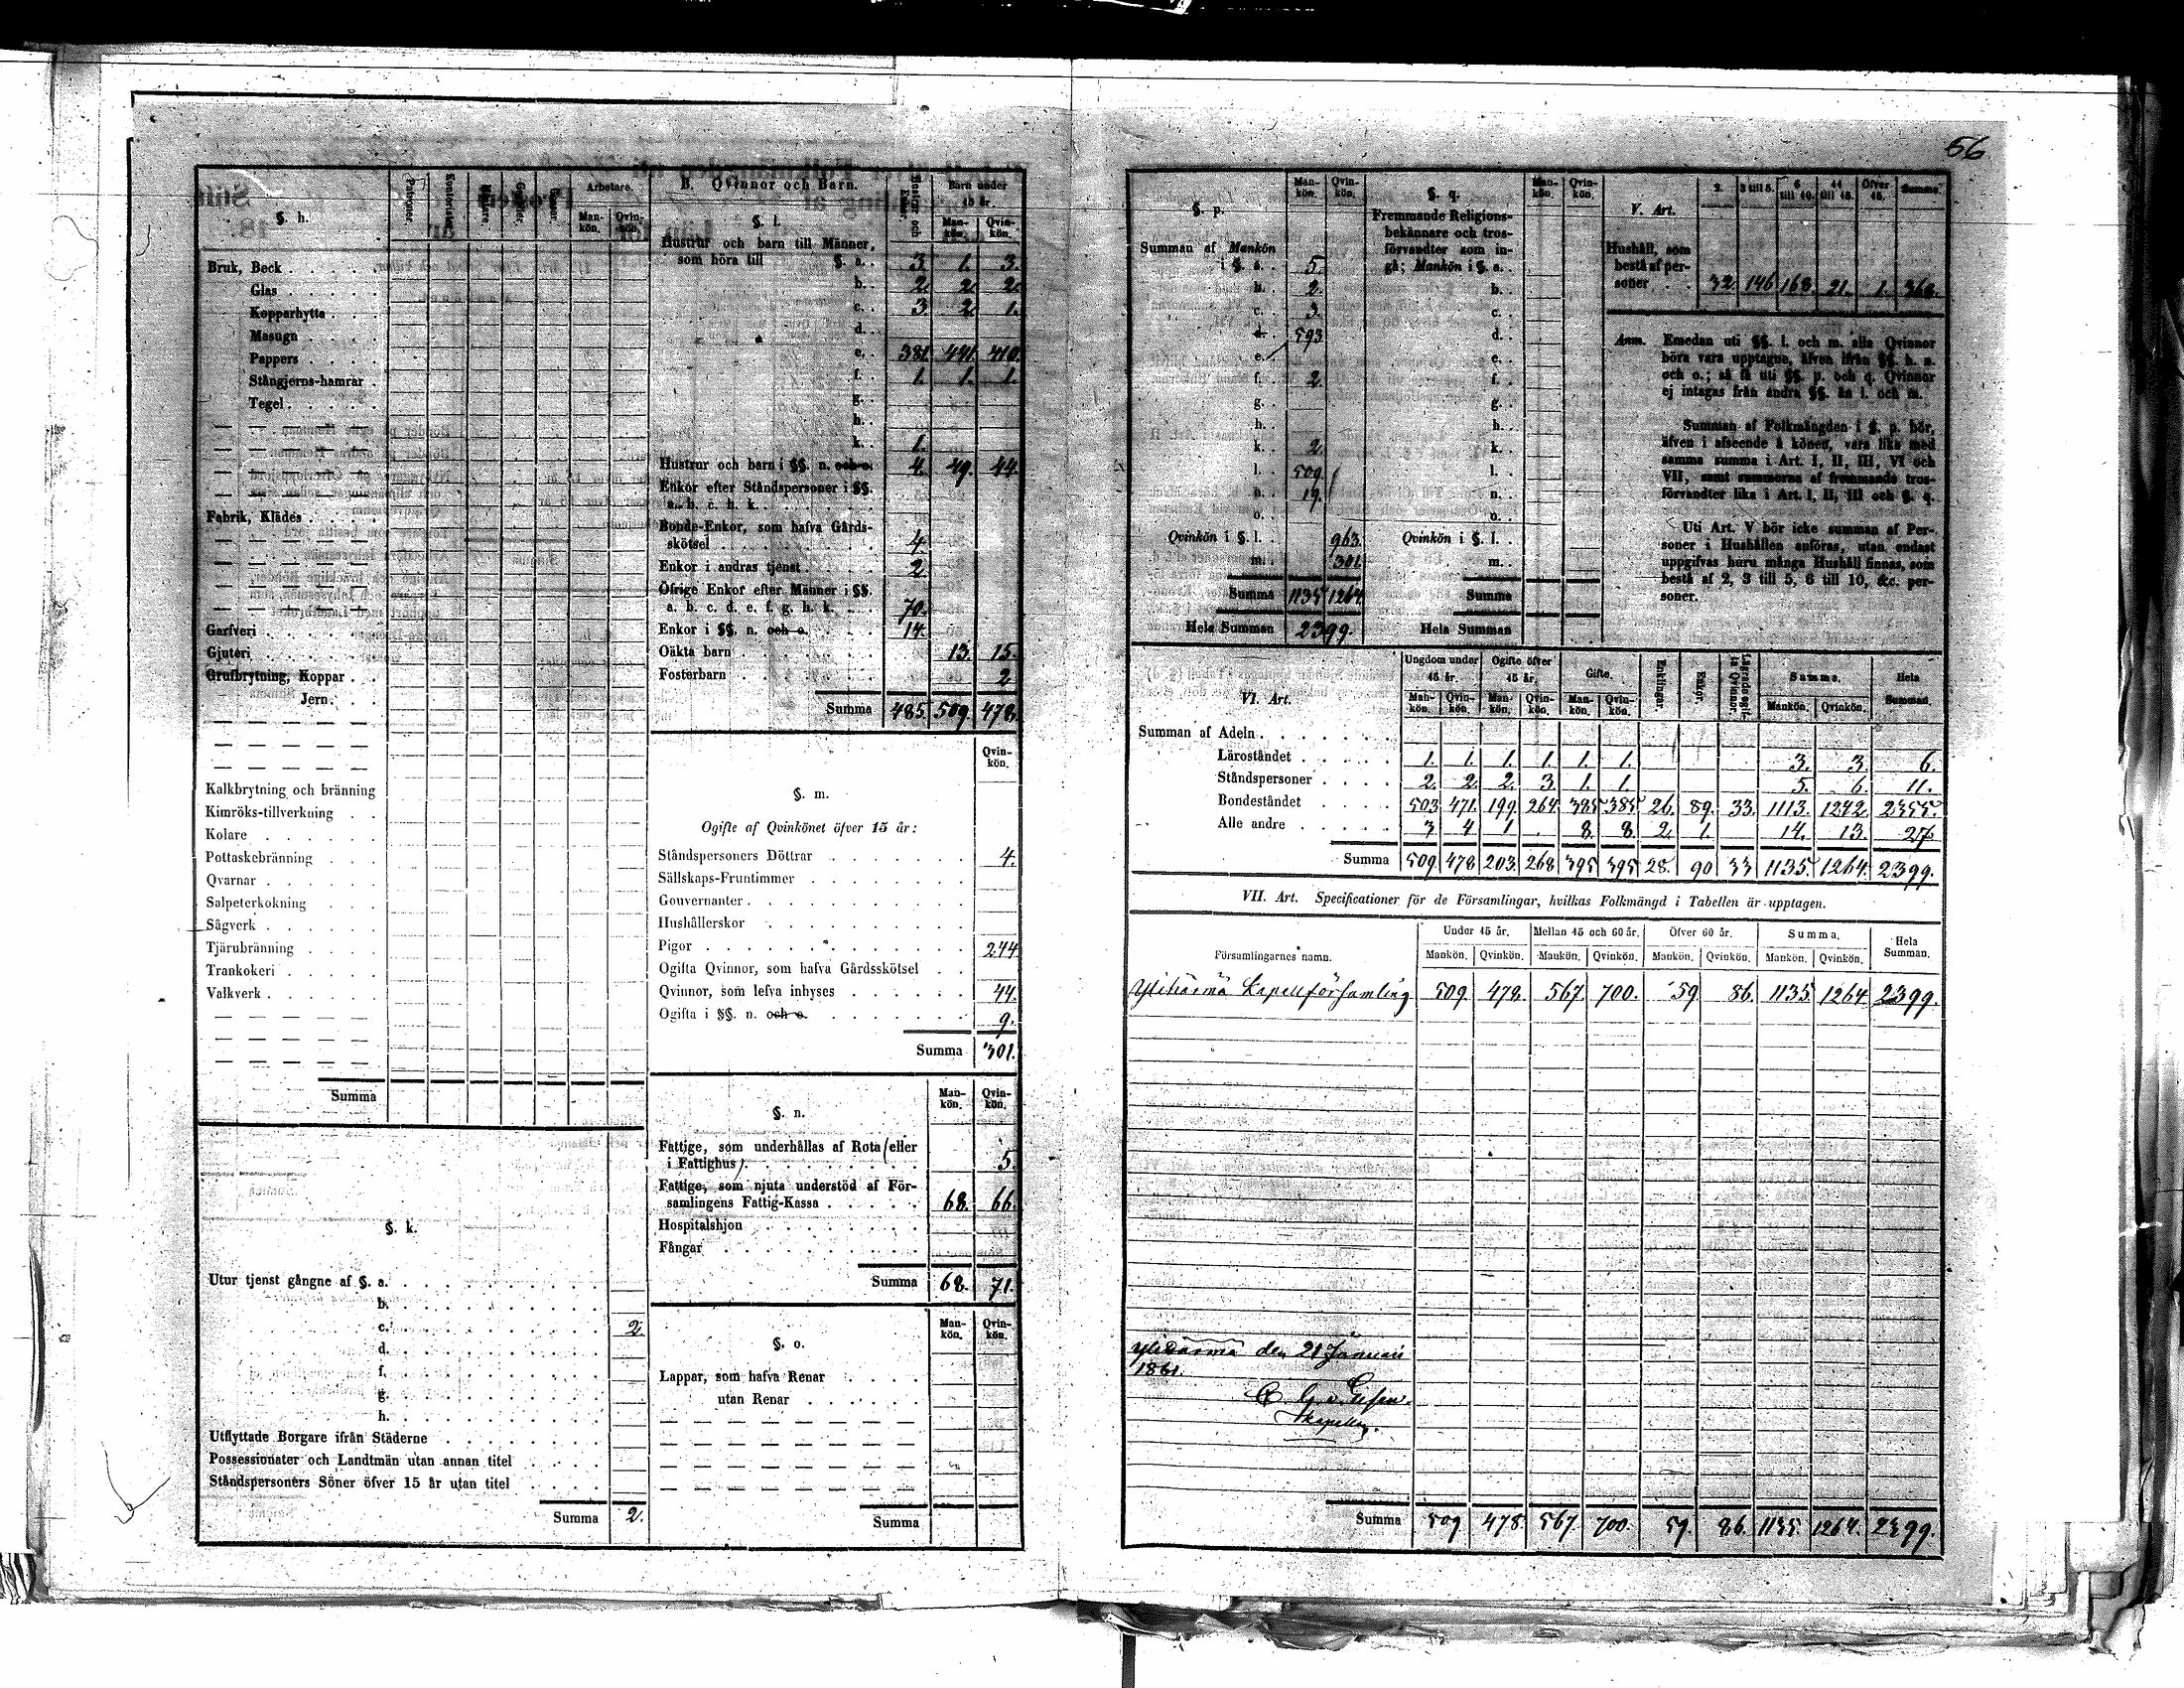 56
§. h.
Arbetare.
Man-kön. Qvin-kön.
Bruk, Beck
Glas
Kopparhytta
Masugn
Pappers
Stångjerns-hamrar
Tegel
Fabrik, Klädes
Garfveri
Gjuteri
Grufbrytning, Koppar
Jern
Kalkbrytning och bränning
Kimröks-tillverkning
Kolare
Pottaskebränning
Qvarnar
Salpeterkokning
Sågverk
Tjärubränning
Trankokeri
Valkverk
Summa
§. k.
Utur tjenst gångne af §. a.
b.
c. 2.
d.
f.
g.
h.
Utflyttade Borgare ifrån Städerne
Possessionater och Landtmän utan annan titel
Ståndspersoners Söner öfver 15 år utan titel
Summa 2.
B. Qvinnor och Barn.
Hustrur och Enkor. Barn under 15 år.
Man-kön. Qvin-kön.
§. l.
Hustrur och barn till Männer,
som höra till §. a. 3. 1. 3.
b. 2. 2. 2.
c. 3. 2. 1.
d.
e. 381. 441. 410.
f. 1. 1. 1.
g.
h.
k. 1.
Hustrur och barn i §§. n. och o. 4. 49. 44.
Enkor efter Ståndspersoner i §§.
a. b. c. h. k.
Bonde-Enkor, som hafva Gårds-
skötsel 4.
Enkor i andras tjenst 2.
Öfrige Enkor efter Männer i §§.
a. b. c. d. e. f. g. h. k. 70.
Enkor i §§. n. och o. 14.
Oäkta barn 13. 15.
Fosterbarn 2
Summa 485. 509. 478.
Qvin-kön.
§. m.
Ogifte af Qvinkönet öfver 15 år:
Ståndspersoners Döttrar 4.
Sällskaps-Fruntimmer
Gouvernanter
Hushållerskor
Pigor 244
Ogifta Qvinnor, som hafva Gårdsskötsel
Qvinnor, som lefva inhyses 44.
Ogifta i §§. n. och o. 9.
Summa 301.
Man-kön. Qvin-kön.
§. n.
Fattige, som underhållas af Rota (eller
i Fattighus) 5.
Fattige, som njuta understöd af För-
samlingens Fattig-Kassa 68. 66.
Hospitalshjon
Fångar
Summa 68. 71.
Man-kön. Qvin-kön.
§. o.
Lappar, som hafva Renar
utan Renar
Summa
§. p. Man-kön. Qvin-kön.
Summan af Mankön
i §. a. 5.
b. 2.
c. 3.
d. 593
e.
f. 2.
g.
h.
k. 2.
l. 509.
n. 19.
o.
Qvinkön i §. l. 963.
m. 301.
Summa 1135. 1264.
Hela Summan 2399.
§. q. Man-kön. Qvin-kön.
Fremmande Religions-
bekännare och tros-
förvandter som in-
gå; Mankön i §. a.
b.
c.
d.
e.
f.
g.
h.
k.
l.
n.
o.
Qvinkön i §. l.
m.
Summa
Hela Summan
V. Art.
2. 3 till 5. 6 till 10. 11 till 15. Öfver 15. Summa
Hushåll, som
bestå af per-
soner 32. 146. 168. 21. 1. 368.
Anm. Emedan uti §§. l. och m. alla Qvinnor
böra vara upptagna, äfven ifrån §§. h. n.
och o.; så få uti §§. p. och q. Qvinnor
ej intagas från andra §§. än l. och m.
Summan af Folkmängden i §. p. bör,
äfven i afseende å könen, vara lika med
samma summa i Art. I, II, III, VI och
VII, samt summorna af fremmande tros-
förvandter lika i Art. I, II, III och §. q.
Uti Art. V bör icke summan af Per-
soner i Hushållen anföras, utan endast
uppgifvas huru många Hushåll finnas, som
bestå af 2, 3 till 5, 6 till 10, &c. per-
soner.
VI. Art.
Ungdom under 15 år. Ogifte öfver 15 år. Gifte. Enklingar. Enkor. Lägrade ogifta Qvinnor. Summa. Hela Summan.
Man-kön. Qvin-kön. Man-kön. Qvin-kön. Man-kön. Qvin-kön. Mankön. Qvinkön.
Summan af Adeln
Läroståndet 1. 1. 1. 1. 1. 1. 3. 3. 6.
Ståndspersoner 2. 2. 2. 3. 1. 1. 5. 6. 11.
Bondeståndet 503. 471. 199. 264. 385. 385. 26. 89. 33. 1113. 1242. 2355.
Alle andre 3 4 1 . 8. 8. 2. 1. 14. 13. 27.
Summa 509. 478 203. 268 395 395 28. 90 33 1135. 1264. 2399.
VII. Art. Specificationer för de Församlingar, hvilkas Folkmängd i Tabellen är upptagen.
Församlingarnes namn. Under 15 år. Mellan 15 och 60 år. Öfver 60 år. Summa. Hela Summan.
Mankön. Qvinkön. Mankön. Qvinkön. Mankön. Qvinkön. Mankön. Qvinkön.
Ylihärmä Kapellförsamling 509. 478. 567. 700. 59 86. 1135. 1264 2399.
Ylihärmä den 21 Januari
1861.
Summa 509 478. 567. 700. 59. 86. 1135. 1264. 2399.